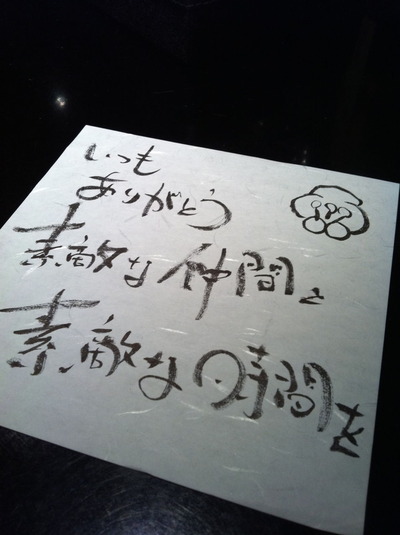 いつも
ありがとう
素敵な仲間と
素敵な時間を